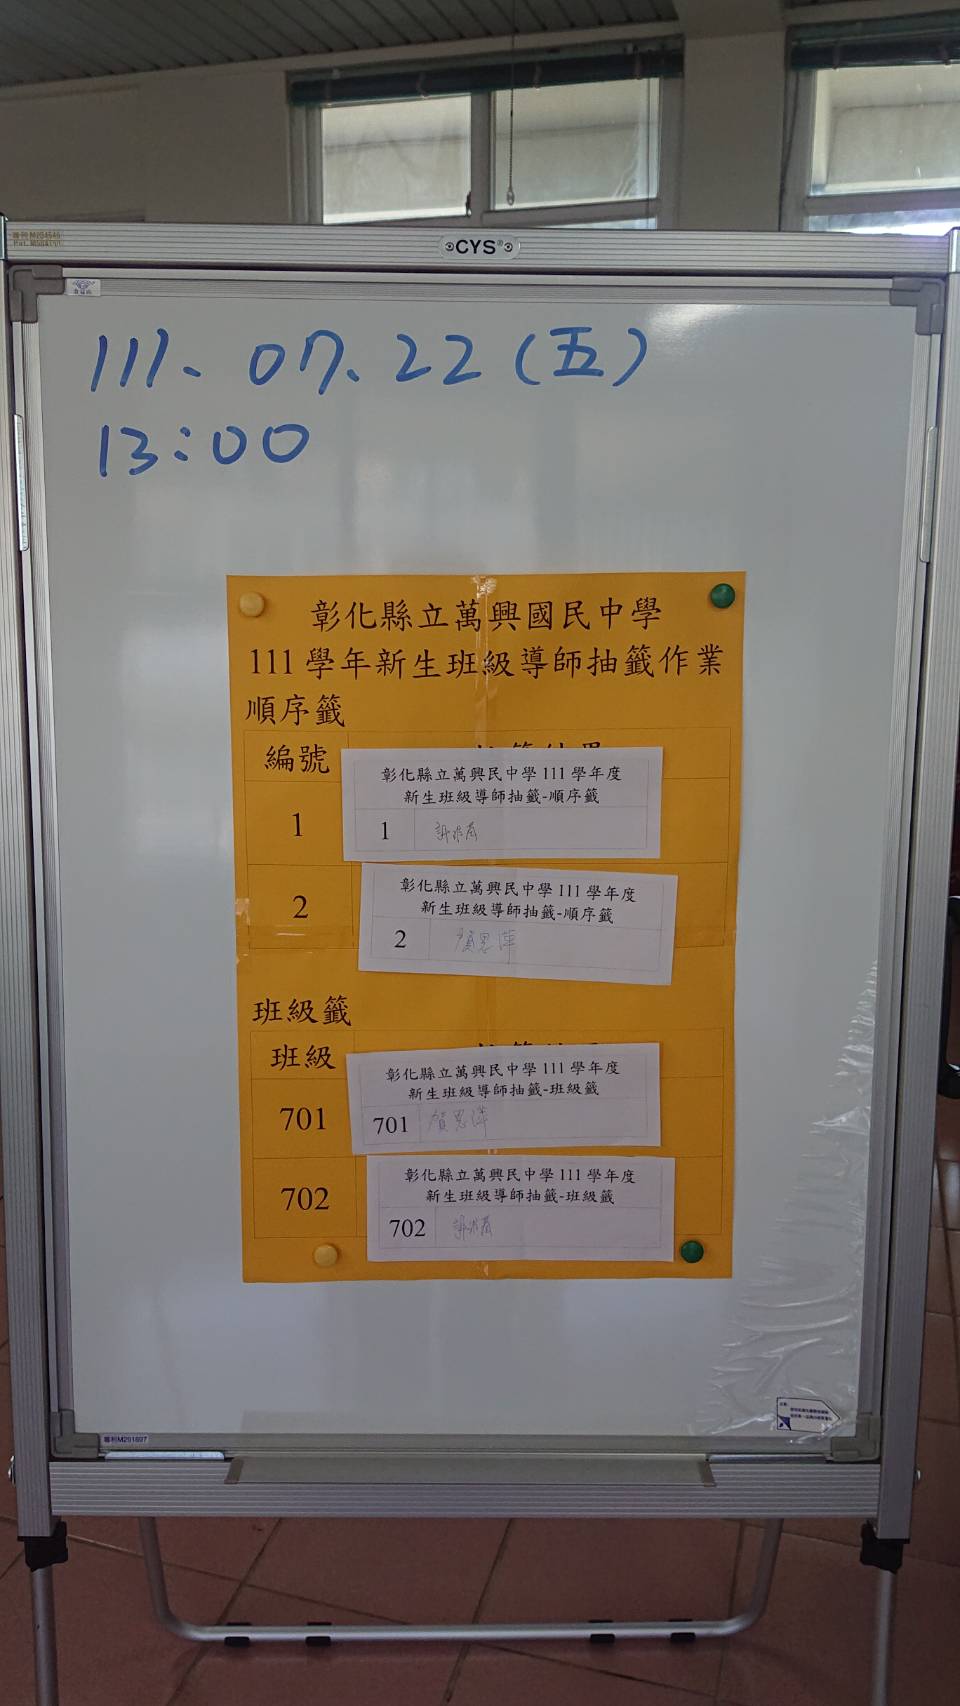 CYS
111.07.22(五)
13:00
彰化縣立萬興國民中學
111 學年新生班級導師抽籤作業
順序籤
編號
彰化縣立萬興民中學 111 學年度
新生班級導師抽籤-順序籤
1
1
彰化縣立萬興民中學 111 學年度
新生班級導師抽籤-順序籤
2
2 賀思萍
班級籤
班級
彰化縣立萬興民中學 111 學年度
新生班級導師抽籤-班級籤
701
701 賀思萍
彰化縣立萬興民中學 111 學年度
新生班級導師抽籤-班級籤
702
702
專利M291697